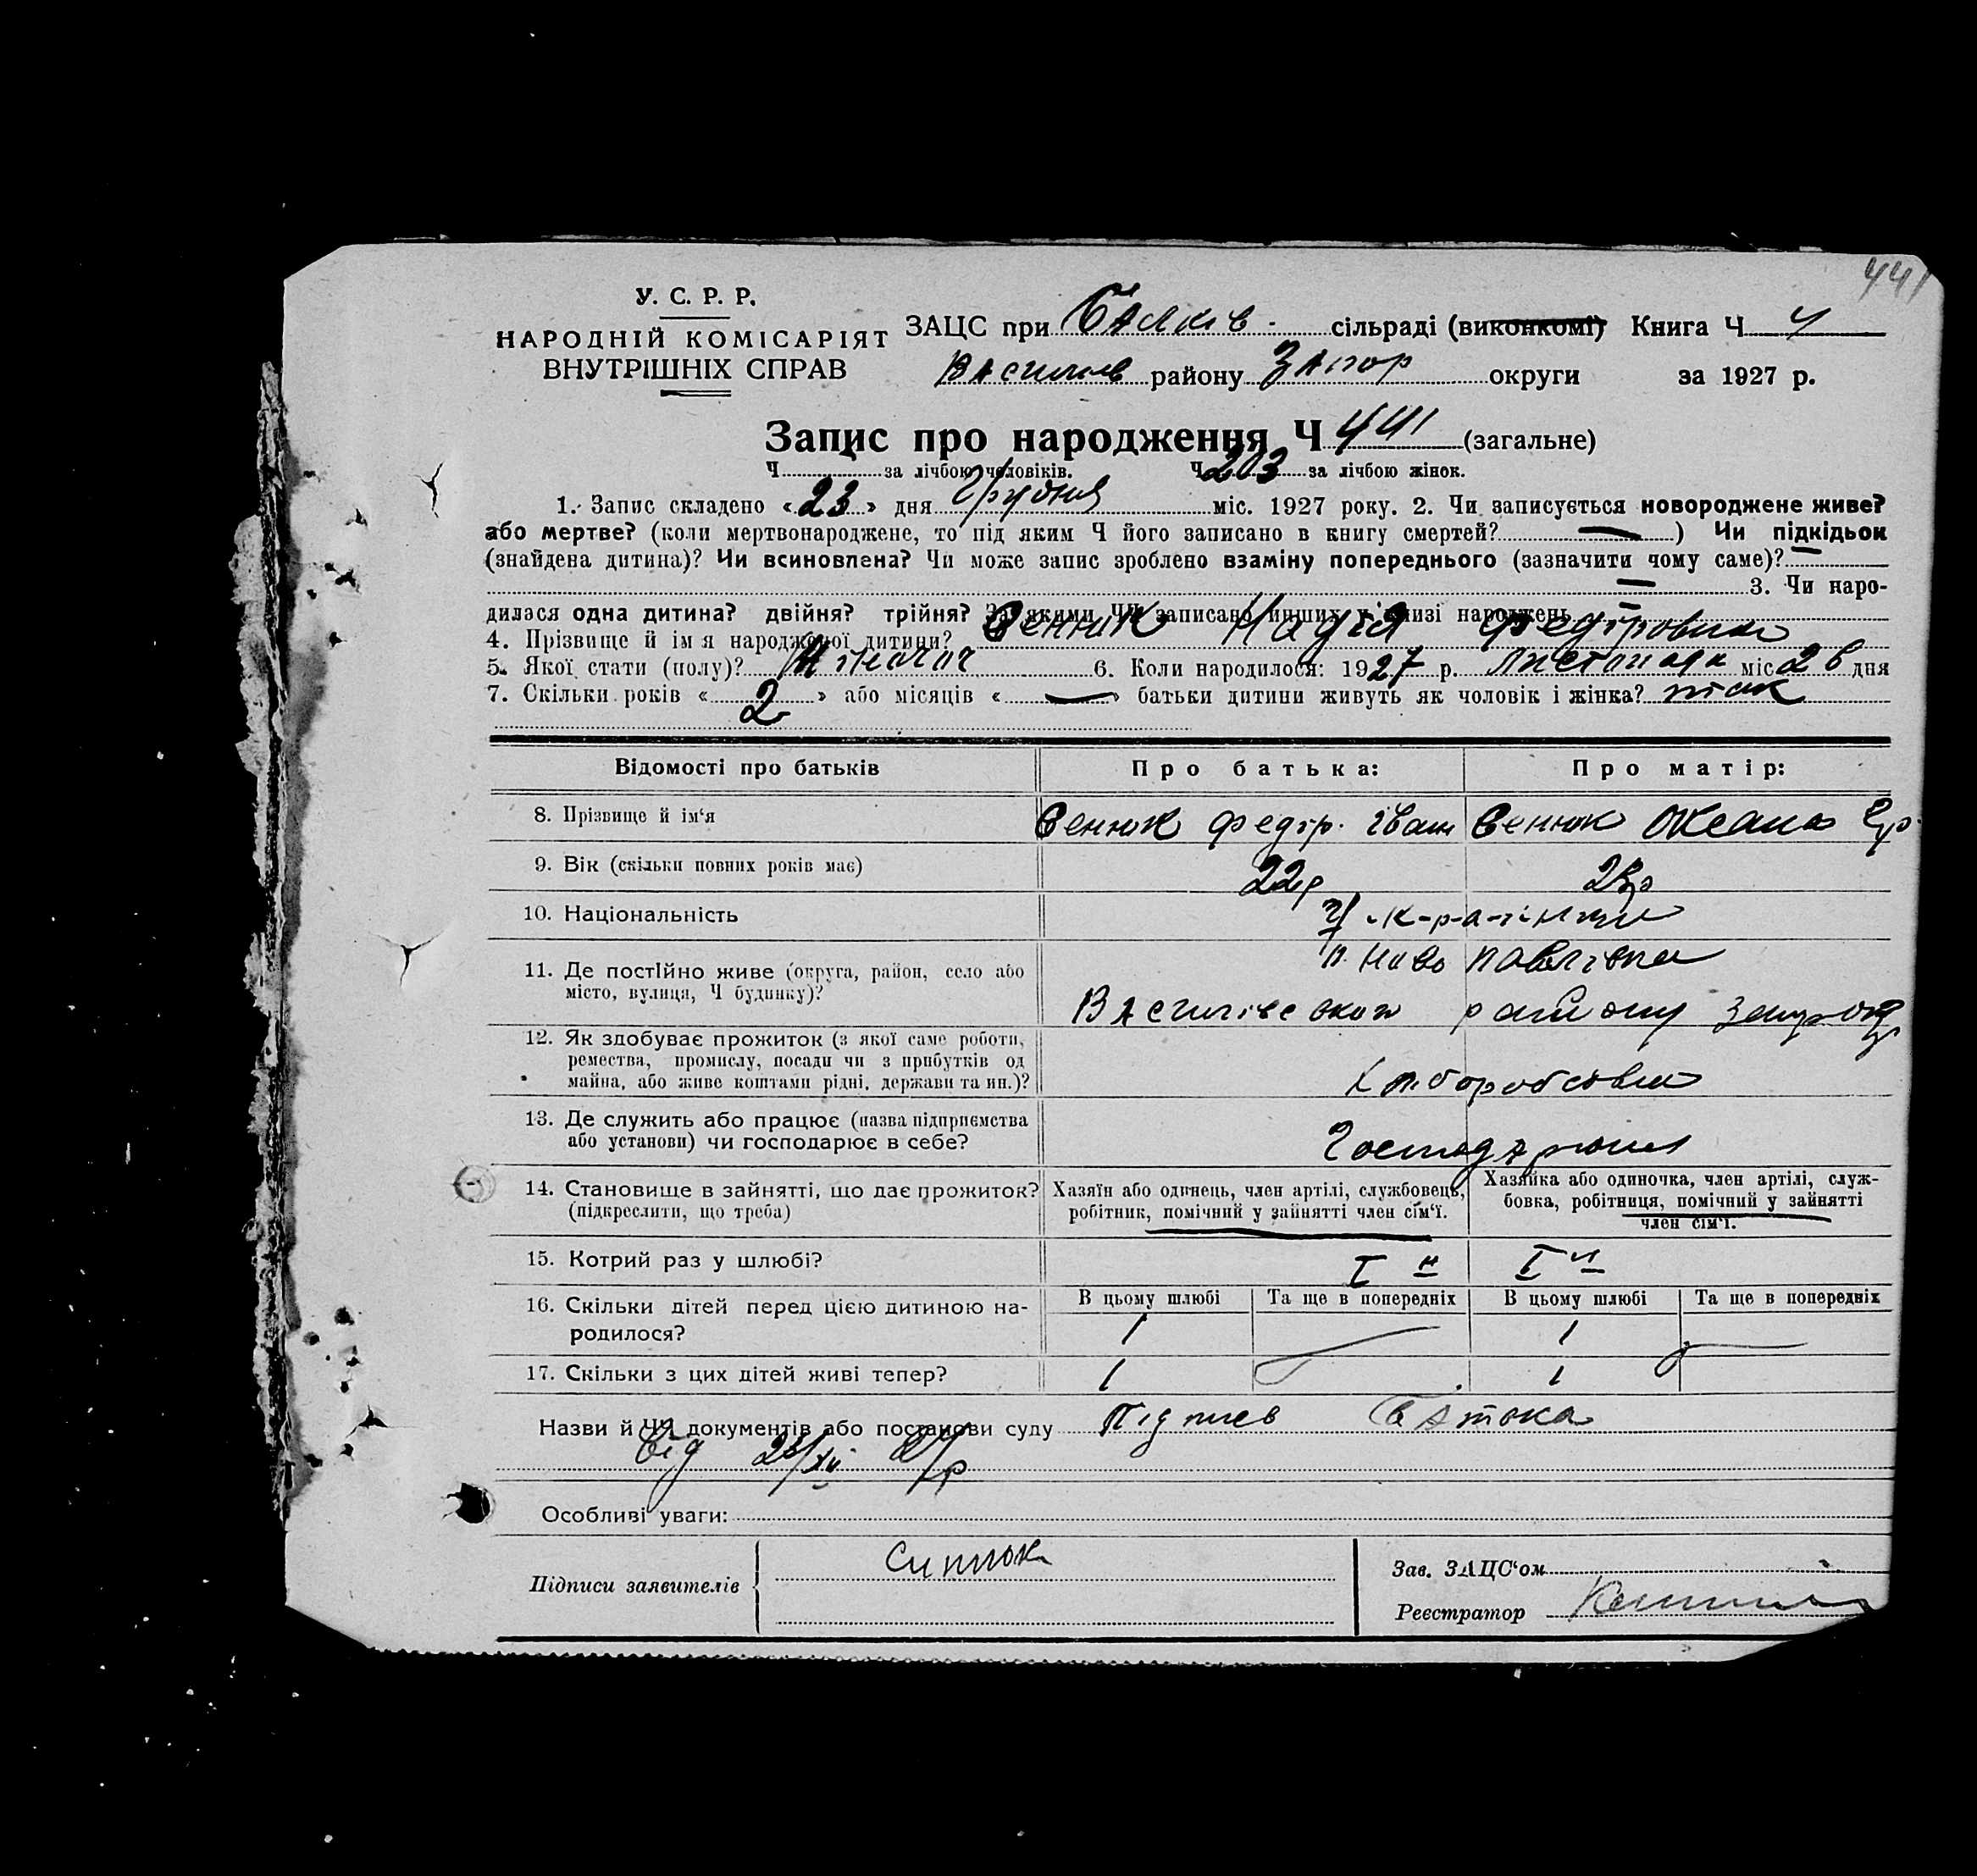 441
У. С. Р. Р.
НАРОДНІЙ КОМІСАРІЯТ
ВНУТРІШНІХ СПРАВ
ЗАЦС при Балків. сільраді (виконкомі) Книга Ч 4
Василів району Запор округи за 1927 р.
Запис про народження Ч 441 (загальне)
Ч за лічбою чоловіків. Ч 203 за лічбою жінок.
1. Запис складено «23» дня Грудня міс. 1927 року. 2. Чи записується новороджене живе?
або мертве? (коли мертвонароджене, то під яким Ч його записано в книгу смертей? —) Чи підкідьок
(знайдена дитина)? Чи всиновлена? Чи може запис зроблено взаміну попереднього (зазначити чому саме)? —
— 3. Чи наро-
дилася одна дитина? двійня? трійня? За якими ЧЧ записано инших у книзі народжень —
4. Прізвище й імя народженої дитини? Венюк Надія Федіровна
5. Якої стати (полу)? Жіночої 6. Коли народилося: 1927 р. листопада міс 26 дня
7. Скільки років «2» або місяців «—» батьки дитини живуть як чоловік і жінка? так
Відомості про батьків Про батька: Про матір:
8. Прізвище й ім'я Венюк Федір. Іван Венюк Оксана Гр.
9. Вік (скільки повних років має) 22р
10. Національність Українці
11. Де постійно живе (округа, район, село або
місто, вулиця, Ч будинку)?
Ново павлівка
Василівського району
12. Як здобуває прожиток (з якої саме роботи,
ремества, промислу, посади чи з прибутків од
майна, або живе коштами рідні, держави та ин.)?
13. Де служить або працює (назва підприємства
або установи) чи господарює в себе?
14. Становище в зайнятті, що дає прожиток?
(підкреслити, що треба)
Хазяїн або одинець, член артілі, службовець,
робітник, помічний у зайнятті член сім'ї.
Хазяйка або одиночка, член артілі, служ-
бовка, робітниця, помічний у зайнятті
член сім'ї.
15. Котрий раз у шлюбі? І й І й
16. Скільки дітей перед цією дитиною на-
родилося?
В цьому шлюбі Та ще в попередніх В цьому шлюбі Та ще в попередніх
1 1
17. Скільки з цих дітей живі тепер? 1 1
Назви й ЧЧ документів або постанови суду Підпись батька
від 23/XII 27р
Особливі уваги:
Підписи заявителів
Зав. ЗАЦС'ом
Реєстратор